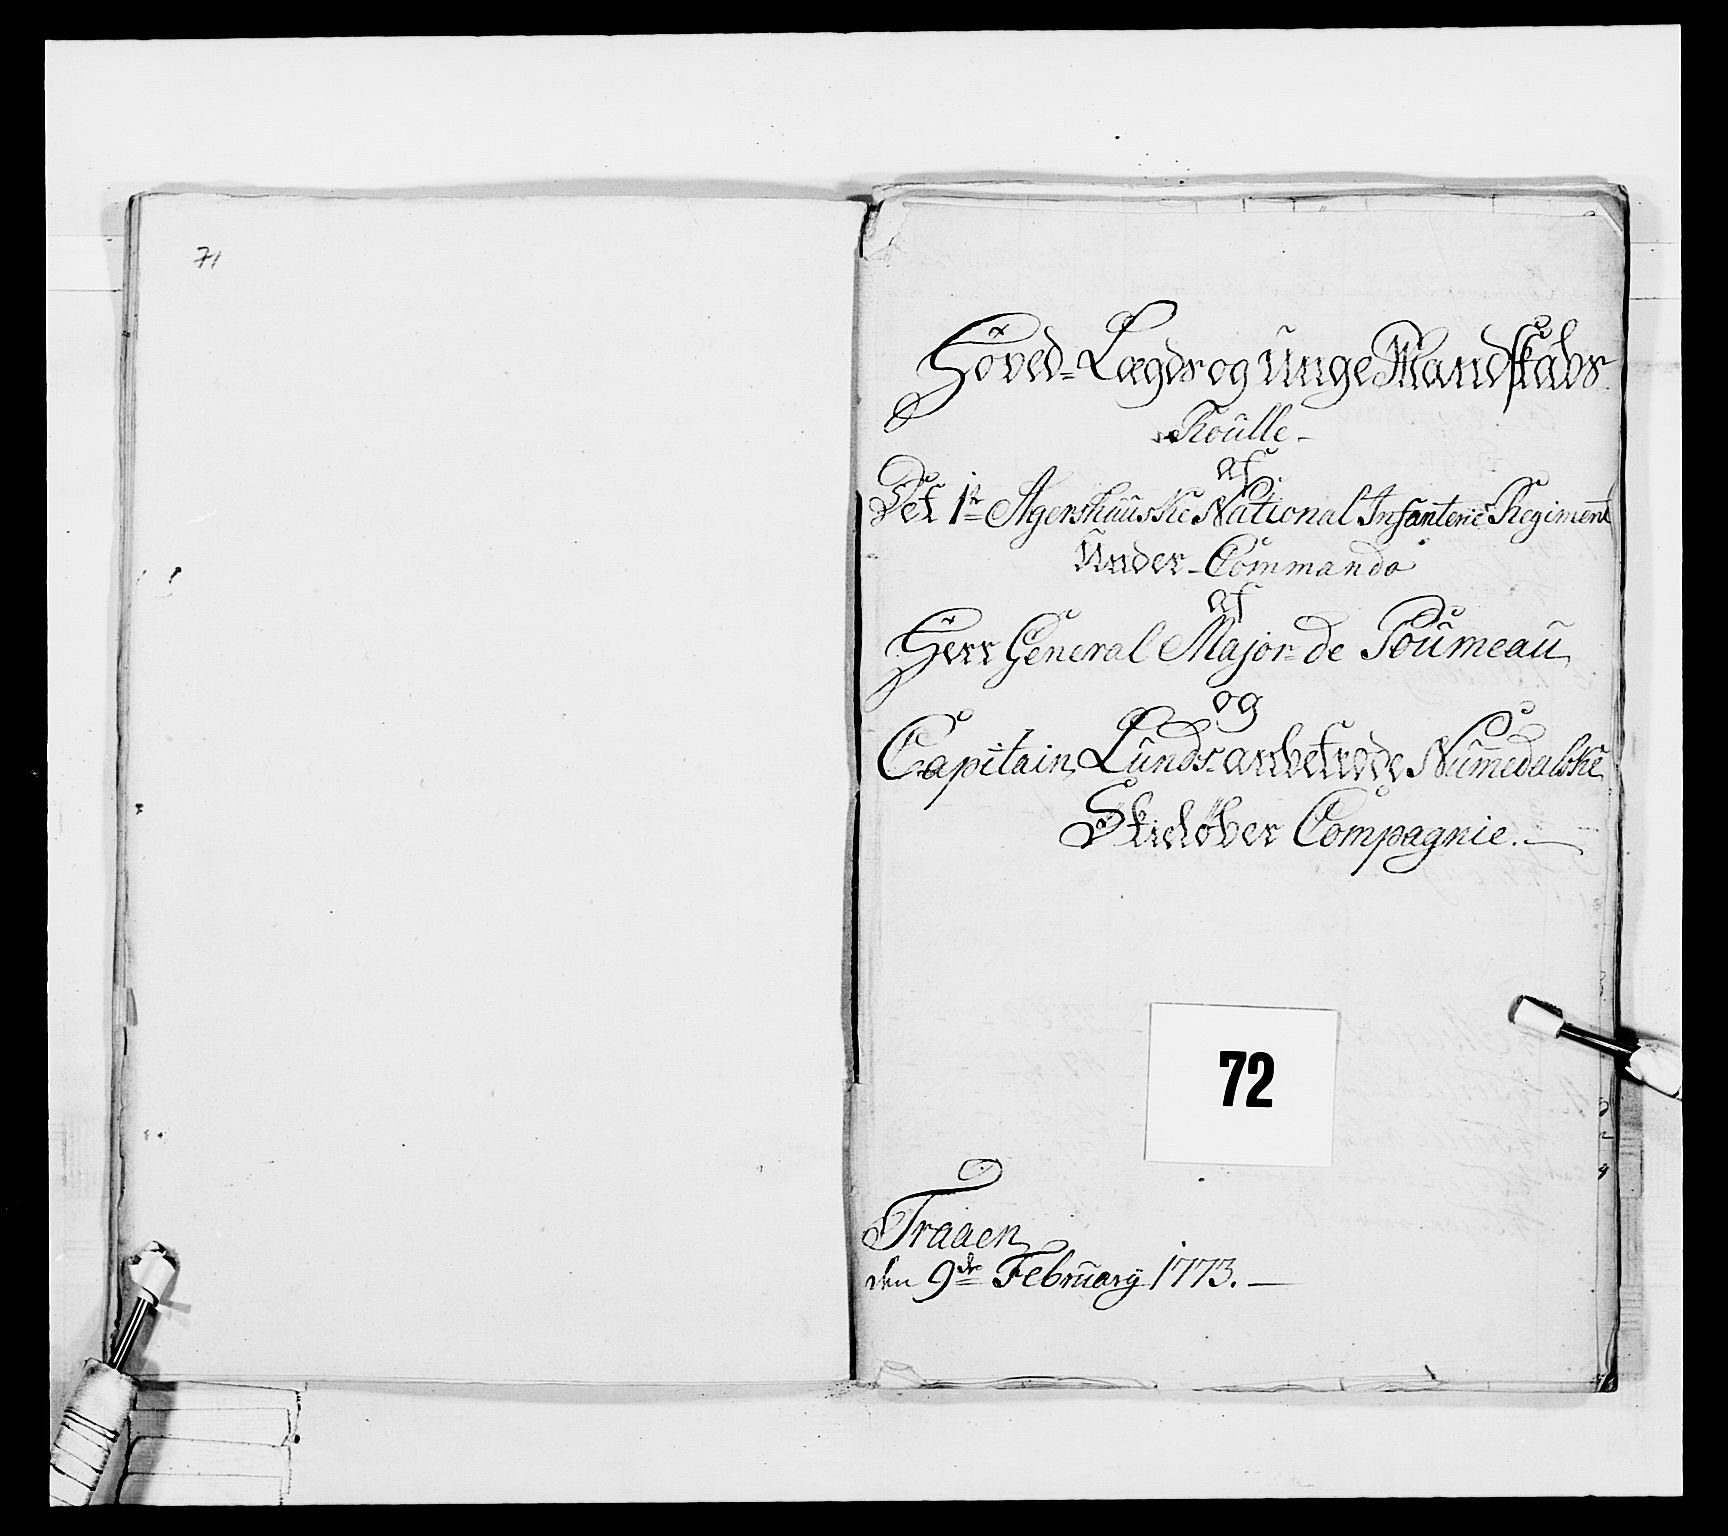 71
Hoved-Lægds og Unge Mandskabs
Roulle-
af
Det 1te Agershuuske National Infanterie Regiment
Under-Commando
af
Herr General Major de Poumeau
og
Capitain Lunds anbetroede Numedalske
Skielöber Compagnie.
72
Traaen
den 9de February 1773.